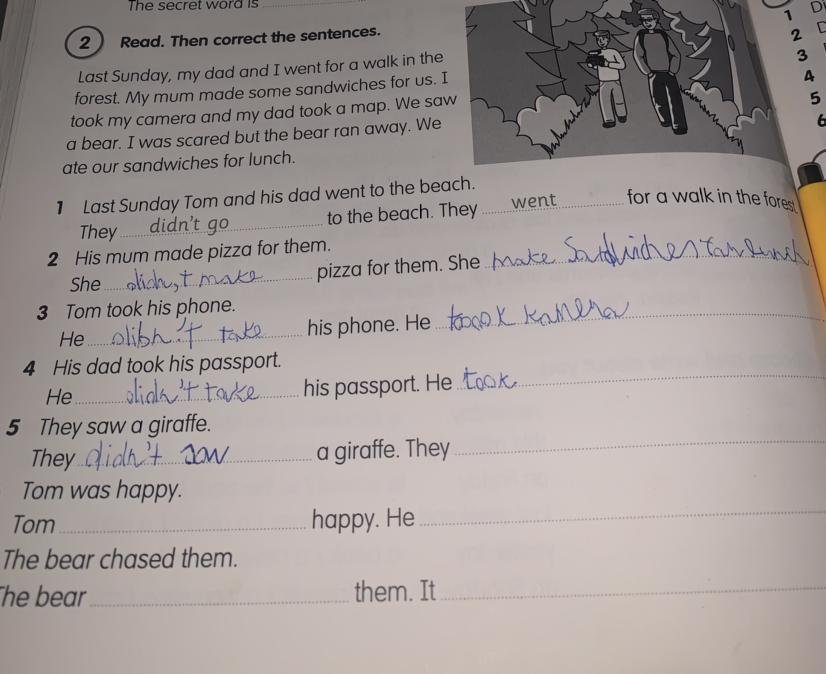 The secret word is
2 Read. Then correct the sentences.
Last Sunday, my dad and I went for a walk in the
forest. My mum made some sandwiches for us. I
took my camera and my dad took a map. We saw
a bear. I was scared but the bear ran away. We
ate our sandwiches for lunch.
1 Last Sunday Tom and his dad went to the beach.
They didn't go to the beach. They went for a walk in the forest
2 His mum made pizza for them.
She didn,t make pizza for them. She make
3 Tom took his phone.
He take his phone. He
4 His dad took his passport.
He didn't take his passport. He took
5 They saw a giraffe.
They didn't saw a giraffe. They
Tom was happy.
Tom happy. He
The bear chased them.
The bear them. It
1
2
3
4
5
6